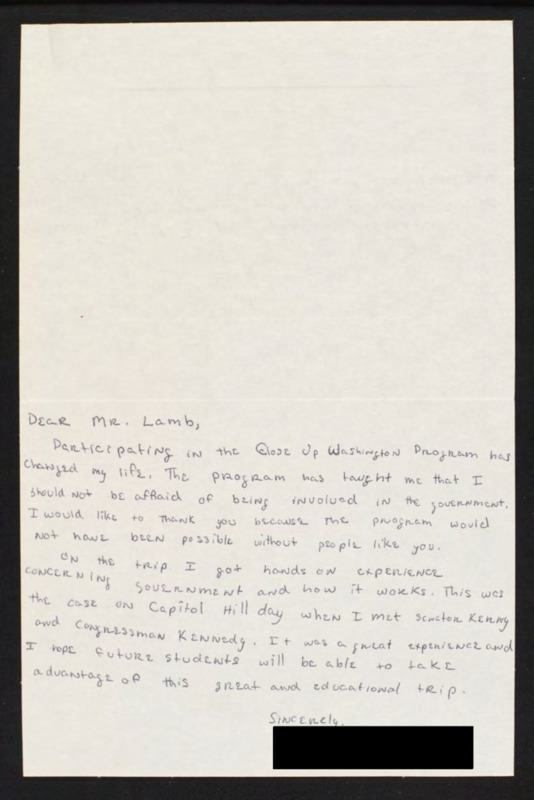 Dear Mr. Lamb,
Participating in the Close Up Washington Program has
changed my life. The program has taught me that I
should not be affraid of being involved in the government.
I would like to thank you because the program would
not have been possible without people like you.
On the trip I got hands on experience
concerning government and how it works. This was
the case on Capitol Hill day when I met senator Kerry
and Congressman Kennedy. It was a great experience and
I hope future students will be able to take
advantage of this great and educational trip.
Sincerely,